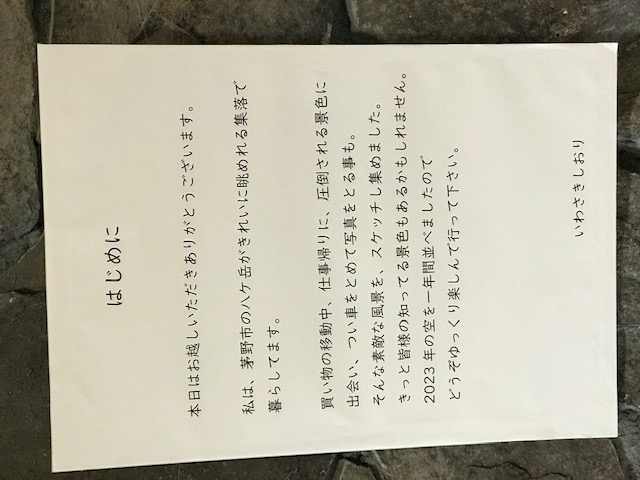 はじめに
本日はお越しいただきありがとうございます。
私は、茅野市の八ケ岳がきれいに眺めれる集落で
暮らしてます。
買い物の移動中、仕事帰りに、圧倒される景色に
出会い、つい車をとめて写真をとる事も。
そんな素敵な風景を、スケッチし集めました。
きっと皆様の知ってる景色もあるかもしれません。
2023年の空を一年間並べましたので
どうぞゆっくり楽しんで行って下さい。
いわさきしおり